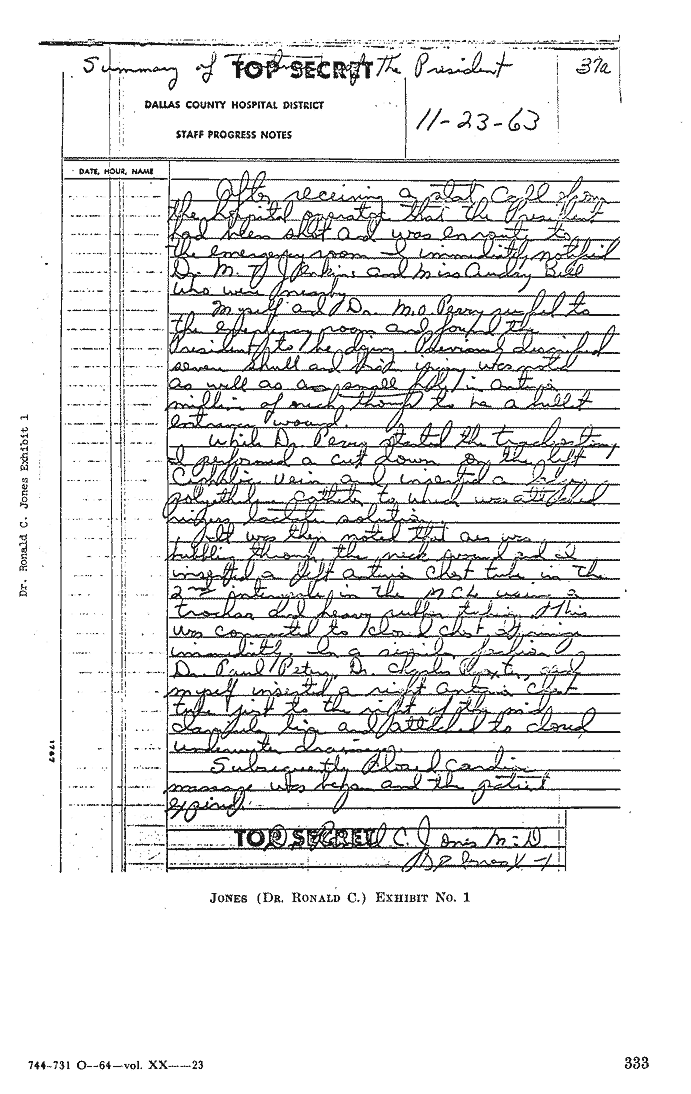 Summary of Treatment of the President 37a
TOP SECRET
DALLAS COUNTY HOSPITAL DISTRICT
11-23-63
STAFF PROGRESS NOTES
DATE, HOUR, NAME
After receiving a stat call from
the hospital operator that the President
had been shot and was enroute to
the emergency room I immediately notified
Dr. M. T. J Jenkins and Miss Audrey Bell
who were nearby.
Myself and Dr. M.O. Perry rushed to
the emergency room and found the
President to be dying. Previously described
severe skull and brain injury was noted
as well as a small hole in anterior
midline of neck thought to be a bullet
entrance wound.
While Dr. Perry started the tracheostomy
I performed a cut down on the left
Cephalic vein and inserted a
polyethylene catheter to which was attached
ringers lactate solution.
It was then noted that air was
bubbling through the neck wound and I
inserted a left anterior chest tube in the
2nd interspace in the MCL using a
trochar and heavy rubber tubing. This
was connected to closed chest drainage
immediately. In a similar fashion
Dr. Paul Peters, Dr. Charles Baxter, and
myself inserted a right anterior chest
tube just to the right of the mid
clavicular line and attached to closed
underwater drainage.
Subsequently closed cardiac
massage was begun and the patient
expired.
TOP SECRET
Ronald C. Jones M.D
Dr. Ronald C. Jones Exhibit 1
JONES (DR. RONALD C.) EXHIBIT NO. 1
744-731 O--64--vol. XX----23
333